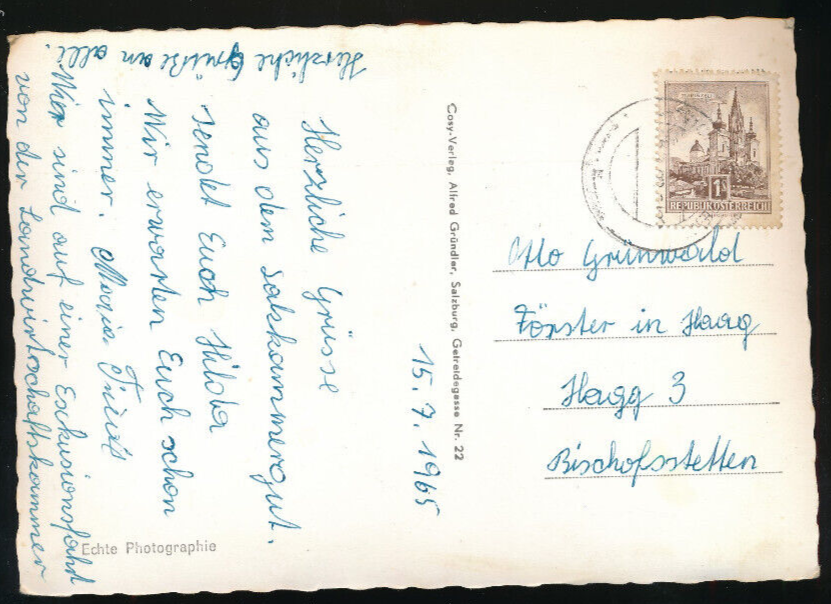 Herzliche Grüsse
aus dem Salzkammergut.
sendet Euch Hilda
Wir erwarten Euch schon
immer. Maria
Wier sind auf einer Exkusionsfahrt
von der Landwirtschaftskammer
Herzliche Grüße an alli.
15. 7. 1965
Cosy-Verlag, Alfred Gründler, Salzburg, Getreidegasse Nr. 22
Echte Photographie
1
REPUBLIK ÖSTERREICH
Otto Grünwald
Förster in Haag
Hagg 3
Bischofsstetten